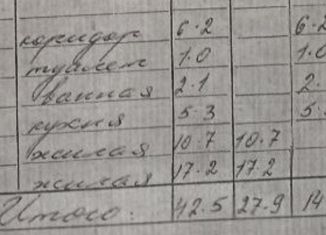 коридор 6.2 6.2
туалет 1.0 1.0
ванная 2.1 2.
кухня 5.3 5.
жилая 10.7 10.7
жилая 17.2 17.2
Итого: 42.5 27.9 14